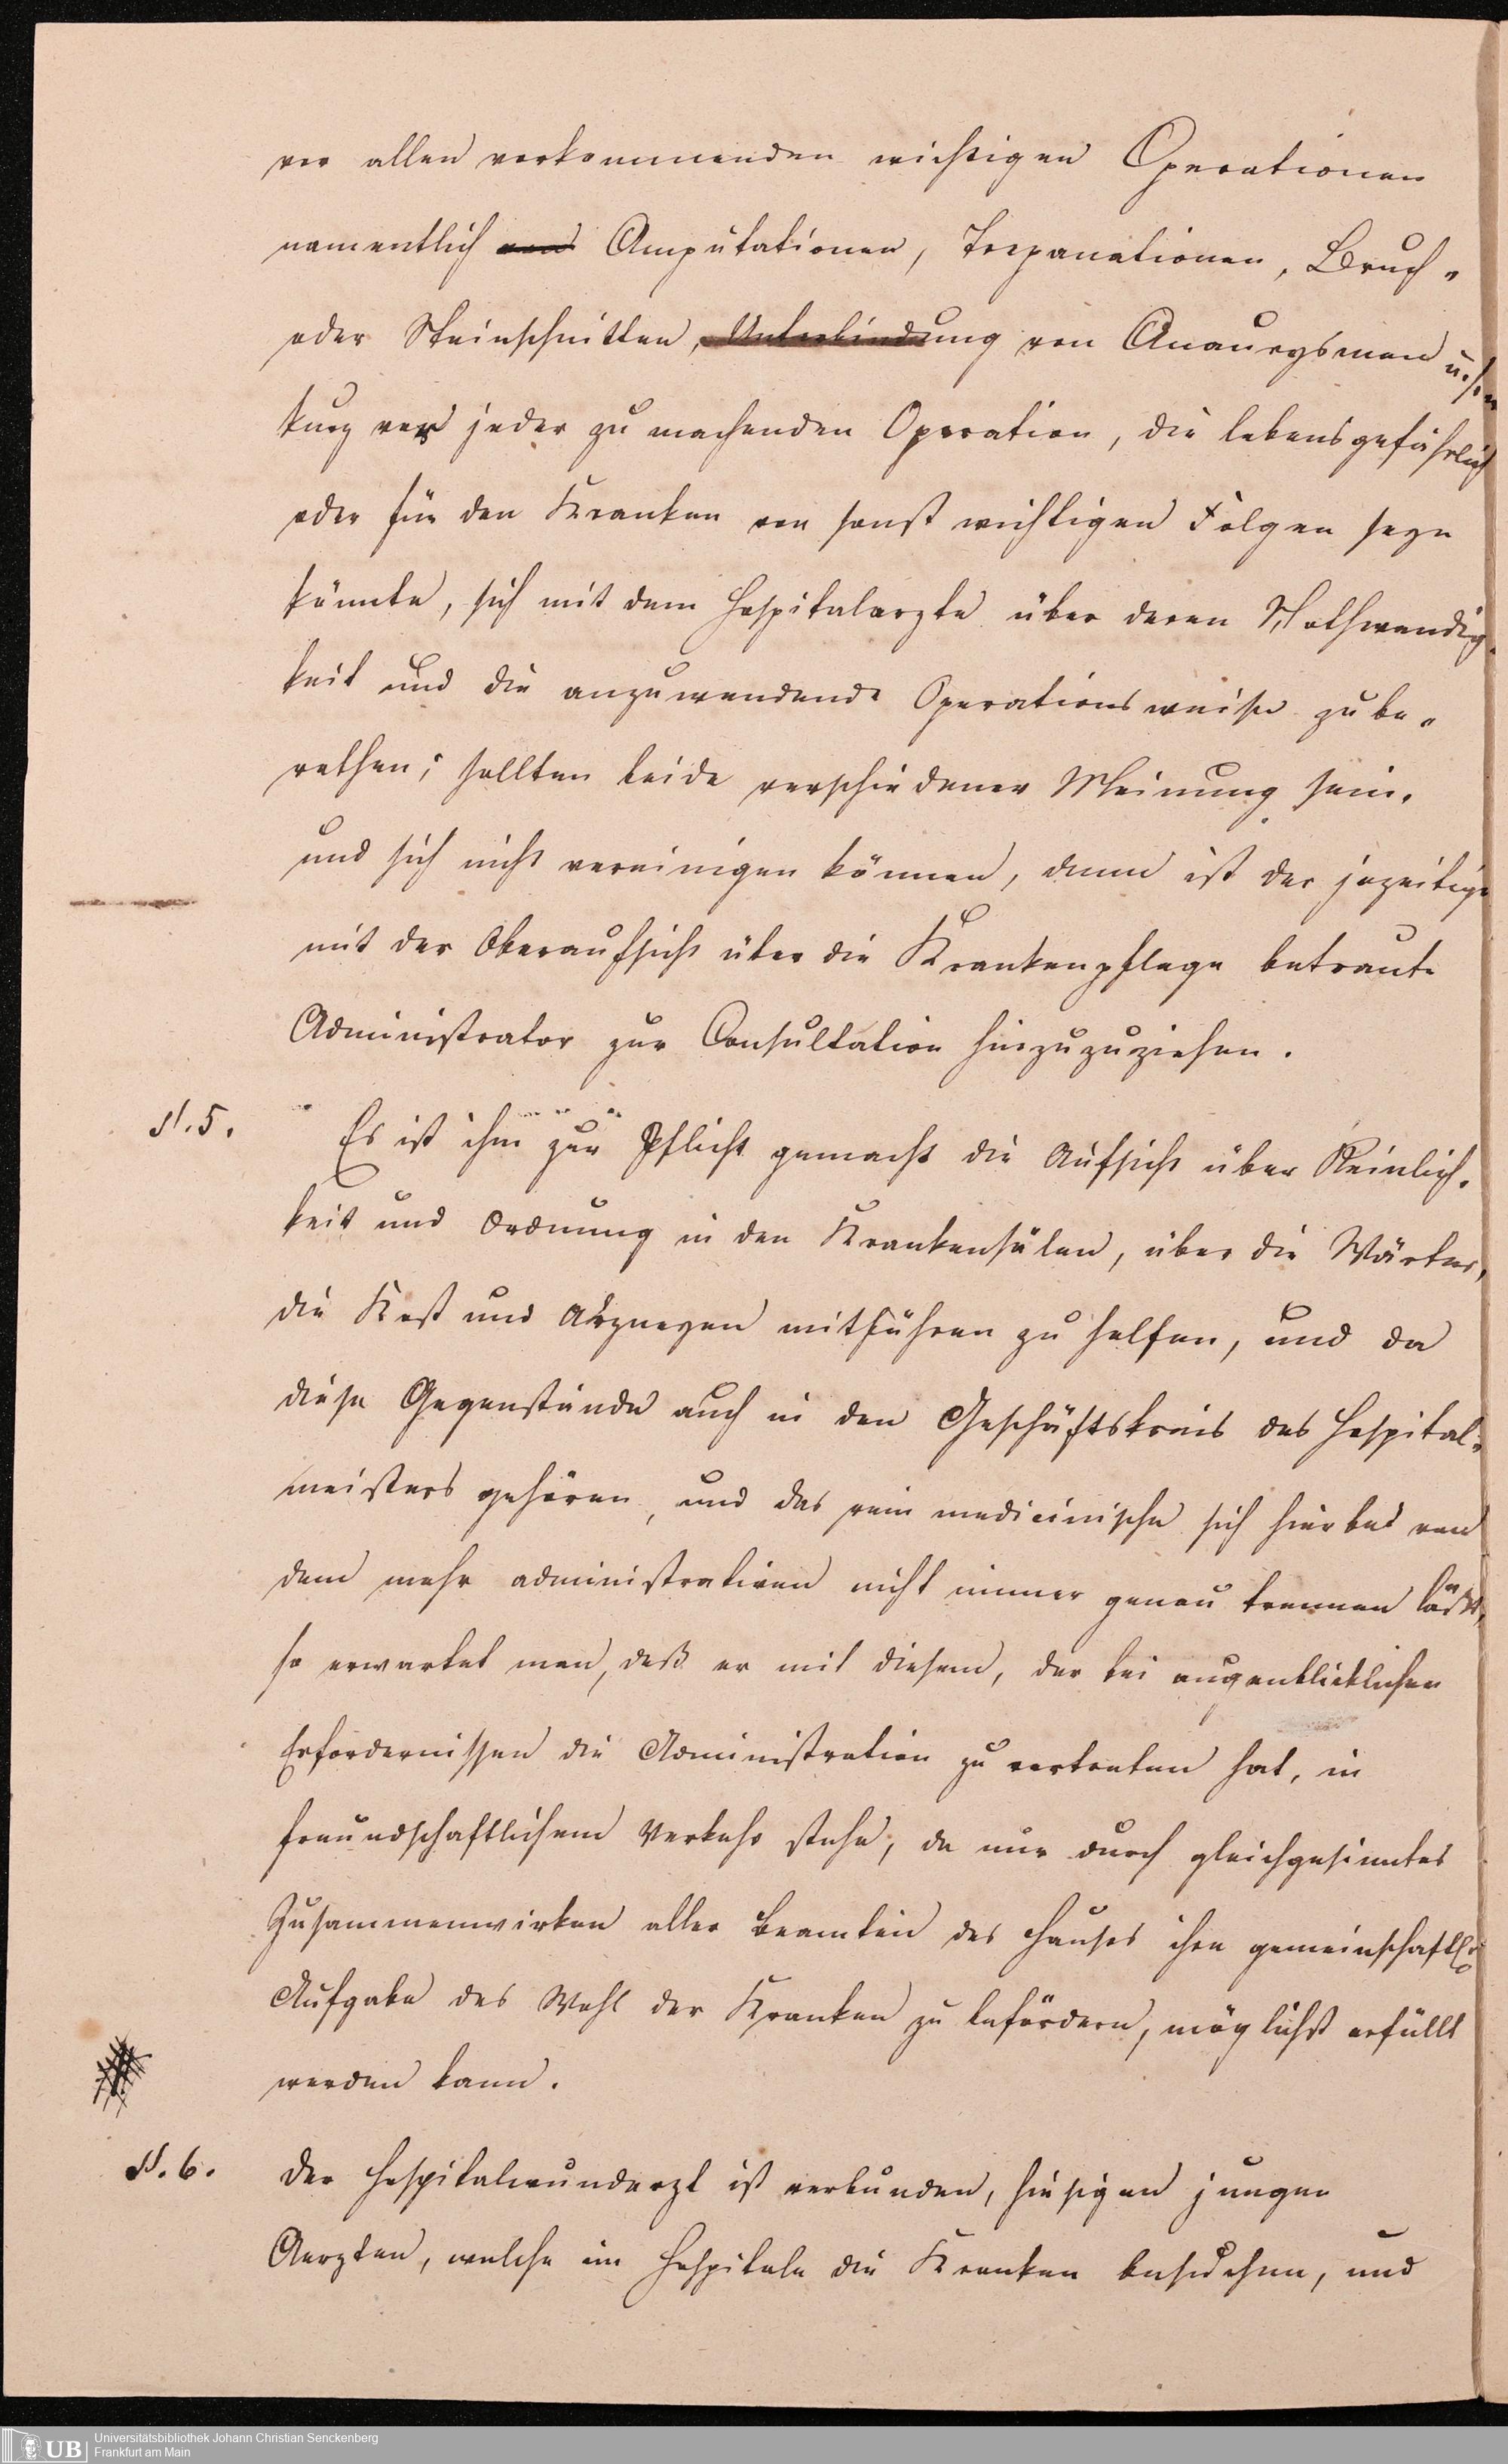 vor allen vorkommenden wichtigen Operationen
namentlich Amputationen, Trepanationen, Bruch-
oder Steinschnitten, Unterbindung von Aneurysmen u. s. w.
kurz vor jeder zu machenden Operation, die lebensgefährlich
oder für den Kranken von sonst wichtigen Folgen seyn
könnte, sich mit dem Hospitalarzte über deren Nothwendig-
keit und die anzuwendende Operationsweise zu be-
rathen; sollten beide verschiedener Meinung sein,
und sich nicht vereinigen können, dann ist der jezeitige
mit der Oberaufsicht über die Krankenpflege betraute
Administrator zur Consultation hinzuzuziehen.
§. 5. Es ist ihm zur Pflicht gemacht die Aufsicht über Reinlich-
keit und Ordnung in den Krankensälen, über die Wärter,
die Kost und Arzneyen mitführen zu helfen, und da
diese Gegenstände auch in den Geschäftskreis des Hospital-
meisters gehören, und das rein medicinische sich hierbei von
dem mehr administrativen nicht immer genau trennen läßt,
so erwartet man, daß er mit diesem, der bei augenblicklichen
Erfordernissen die Administration zu vertreten hat, in
freundschaftlichem Verkehr stehe, da nur durch gleichgesinntes
Zusammenwirken aller Beamten des Hauses ihre gemeinschaftl.
Aufgabe das Wohl der Kranken zu befördern, möglichst erfüllt
werden kann.
§. 6. Der Hospitalwundarzt ist verbunden, hiesigen jungen
Aerzten, welche im Hospitale die Kranken besuchen, und
UB Universitätsbibliothek Johann Christian Senckenberg
Frankfurt am Main